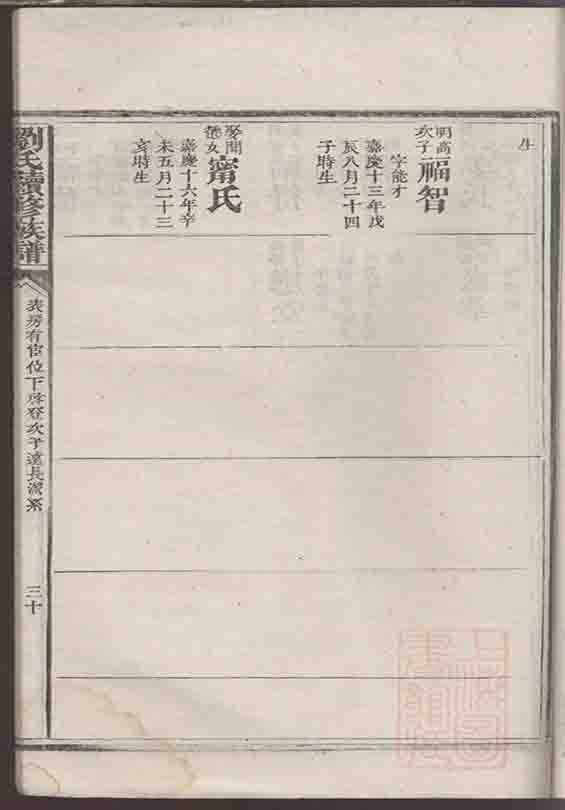 生
明高次子
福智
字能才
嘉慶十三年戊
辰八月二十四
子時生
娶聞德女
甯氏
嘉慶十六年辛
未五月二十三
亥時生
劉氏續修族譜
表房有官位下啓登次子遠長濲系
三十